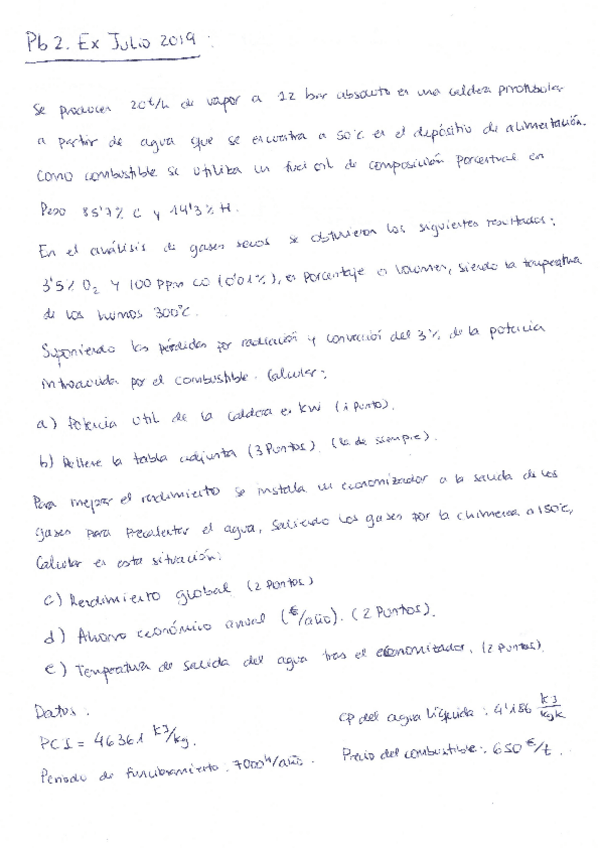 Pb 2. Ex Julio 2019 :
Se producen 20 t/h de vapor a 12 bar absoluto en una caldera pirotubular
a partir de agua que se encuentra a 50°C en el depósito de alimentación.
Como combustible se utiliza un fuel oil de composición porcentual en
Peso 85'7% C y 14'3% H.
En el análisis de gases secos se obtuvieron los siguientes resultados:
3'5% O2 y 100 ppm CO (0'01%), en porcentaje en volumen, siendo la temperatura
de los humos 300°C.
Suponiendo las pérdidas por radiación y convección del 3% de la potencia
introducida por el combustible. Calcular:
a) Potencia útil de la caldera en kW (1 punto).
b) Rellene la tabla adjunta (3 puntos). (la de siempre).
Para mejorar el rendimiento se instala un economizador a la salida de los
gases para precalentar el agua, saliendo los gases por la chimenea a 150°C,
Calcular en esta situación:
c) Rendimiento global (2 puntos)
d) Ahorro económico anual (€/año). (2 puntos).
e) Temperatura de salida del agua tras el economizador. (2 puntos).
Datos:
PCI = 46361 kJ/kg.
Periodo de funcionamiento: 7000 h/año.
CP del agua líquida: 4'186 kJ/kgK
Precio del combustible: 650 €/t.